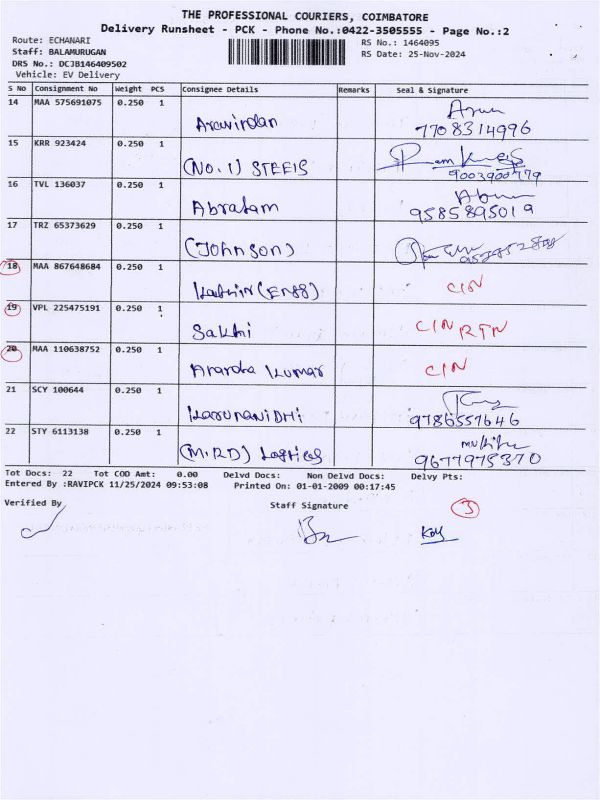 THE PROFESSIONAL COURIERS, COIMBATORE
Delivery Runsheet - PCK - Phone No.:0422-3505555 - Page No.:2
Route: ECHANARI
RS No.: 1464095
Staff: BALAMURUGAN
RS Date: 25-Nov-2024
DRS No.: DCJB146409502
Vehicle: EV Delivery
S No Consignment No Weight PCS Consignee Details Remarks Seal & Signature
14 MAA 575691075 0.250 1
Aravindan 7708314996
15 KRR 923424 0.250 1
(No.1) STEELS 9003900779
16 TVL 136037 0.250 1
Abraham 9585895019
17 TRZ 65373629 0.250 1
(Johnson)
18 MAA 867648684 0.250 1
CIN
19 VPL 225475191 0.250 1
Sakthi CIN RTN
20 MAA 110638752 0.250 1
Kumar CIN
21 SCY 100644 0.250 1
KarunaniDHi 9786557646
22 STY 6113138 0.250 1
(M.R.D) 9677975370
Tot Docs: 22 Tot COD Amt: 0.00 Delvd Docs: Non Delvd Docs: Delvy Pts:
Entered By :RAVIPCK 11/25/2024 09:53:08 Printed On: 01-01-2009 00:17:45
Verified By
Staff Signature
3